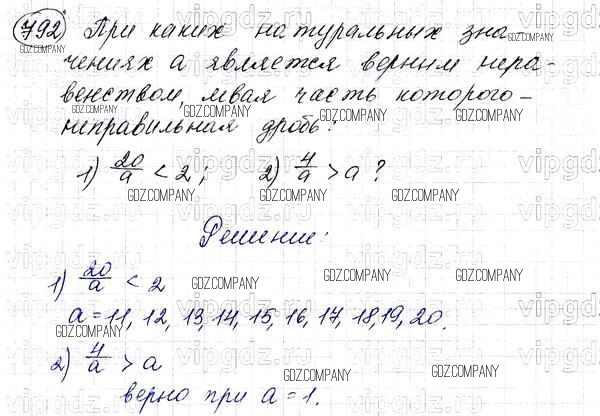 792 При каких натуральных зна-
чениях а является верным нера-
венством, левая часть которого -
неправильная дробь?
1) 20/a < 2; 2) 4/a > a?
Решение:
1) 20/a < 2
a = 11, 12, 13, 14, 15, 16, 17, 18, 19, 20.
2) 4/a > a
верно при a = 1.